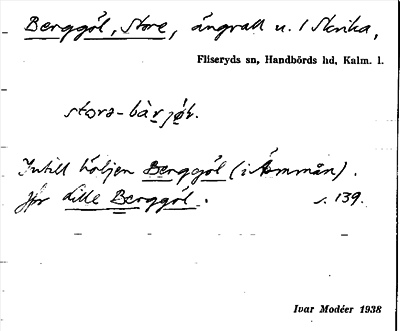 Berggöl, Store, ängvall u. / Skrika,
Fliseryds sn, Handbörds hd, Kalm. l.
stora-bàrjø̀l.
Intill höljen Berggöl (i Ämmån).
Jfr Lille Berggöl. s. 139.
Ivar Modéer 1938